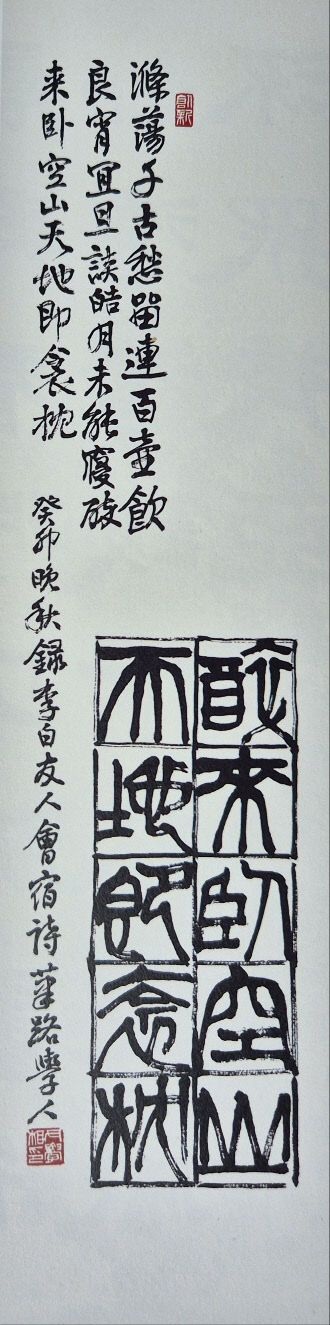 滌蕩千古愁留連百壺飲
良宵宜且談皓月未能寢醉
来卧空山天地即衾枕
癸卯晚秋録李白友人會宿詩篳路學人
醉來臥空山
天地即衾枕